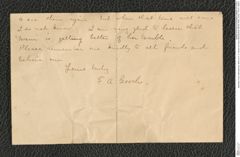 to see them again but when that time will come
I do not know. I am very glad to hear that
is getting better of her trouble
Please remember me kindly to all friends and
believe me
Yours truly